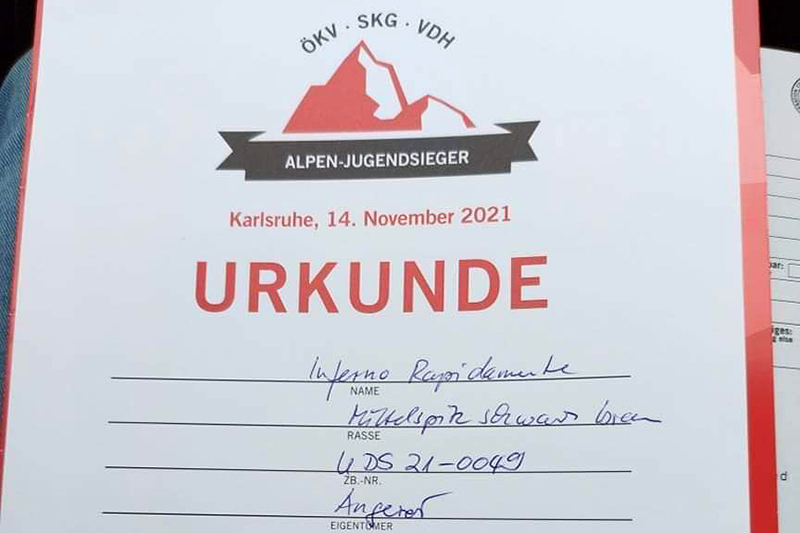 ÖKV · SKG · VDH
ALPEN-JUGENDSIEGER
Karlsruhe, 14. November 2021
URKUNDE
Inferno Rapidamente
NAME
Mittelspitz schwarz braun
RASSE
UDS 21-0049
ZB.-NR.
Angerer
EIGENTÜMER